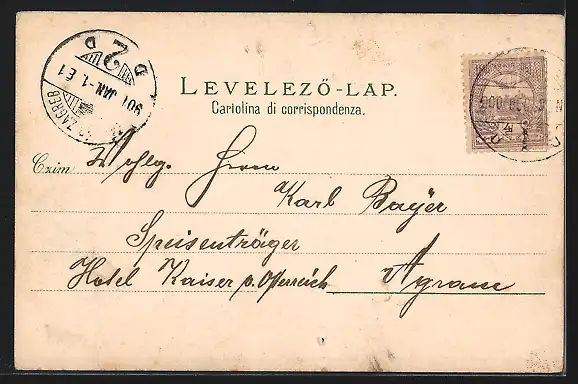 LEVELEZŐ-LAP.
Cartolina di corrispondenza.
ZAGREB
901 JAN. -1. E 1
D 2 D
Czim Wohlg. Herrn
Karl Bayer
Speisenträger
Hotel Kaiser v. Österreich Agram